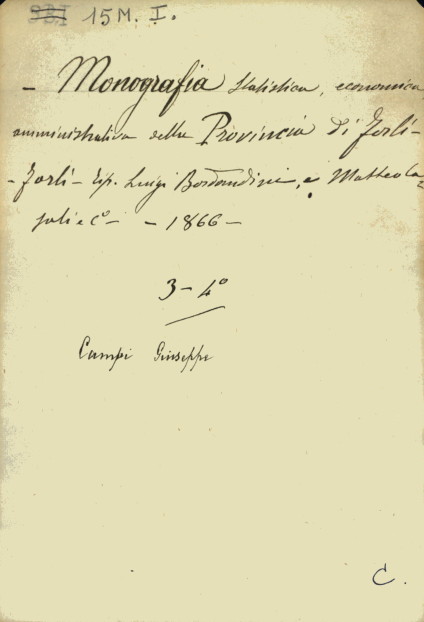 15 M. I.
- Monografia statistica, economica,
amministrativa della Provincia di Forlì-
- Forlì - Tip. Luigi Bordandini, e Matteo Ca=
sali e Cº - - 1866 -
3 - 4º
Campi Giuseppe
C.